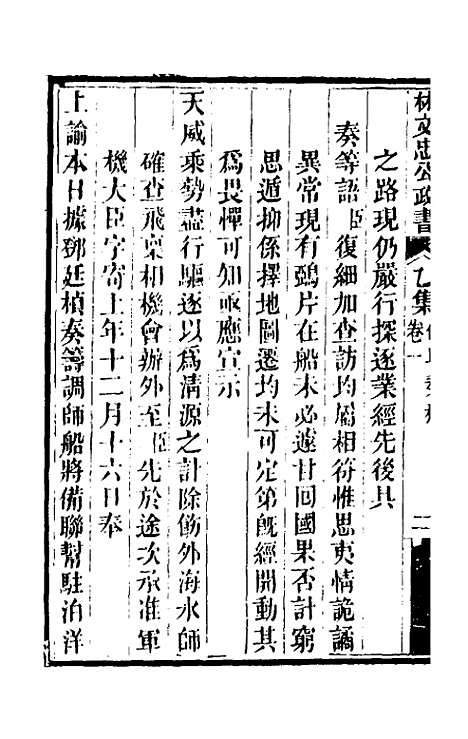 林文忠公政書 乙集 卷一
之路現仍嚴行探逐業經先後具
奏等語臣復細加查訪均屬相符惟思夷情詭譎
異常現有鴉片在船未必遽甘回國果否計窮
思遁抑係擇地圖遷均未可定第既經開動其
爲畏憚可知亟應宣示
天威乘勢盡行驅逐以爲清源之計除飭外海水師
確查飛稟相機會辦外至臣先於途次承准軍
機大臣字寄上年十二月十六日奉
上諭本日據鄧廷楨奏籌調師船將備聯幫駐泊洋